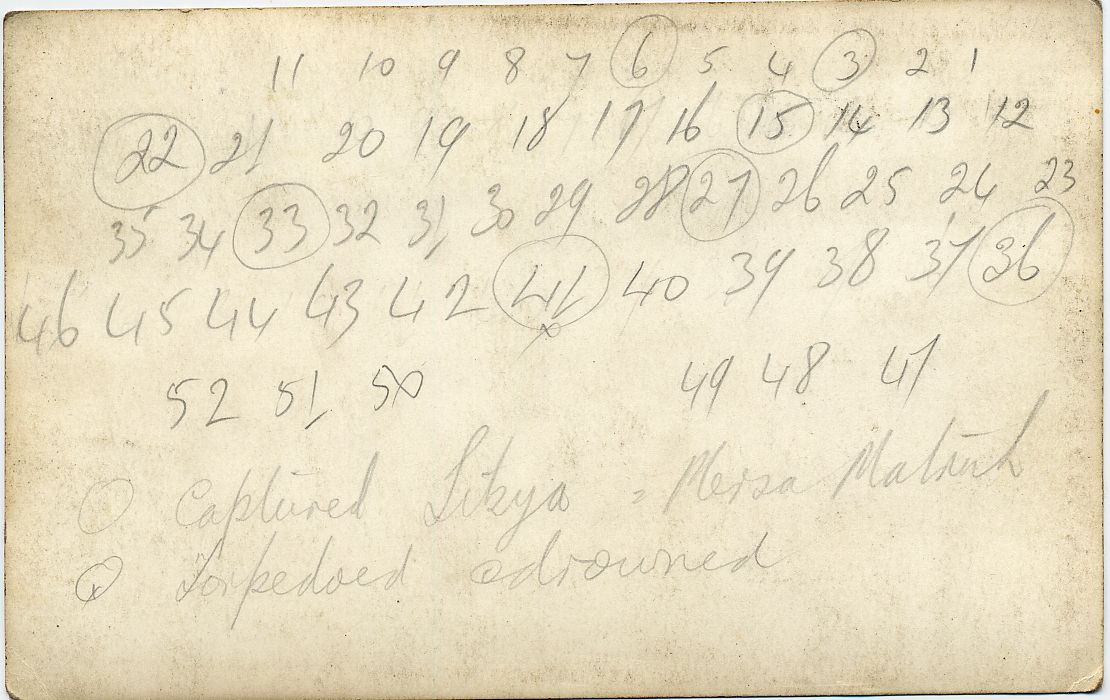 11 10 9 8 7 6 5 4 3 2 1
22 21 20 19 18 17 16 15 14 13 12
35 34 33 32 31 30 29 28 27 26 25 24 23
46 45 44 43 42 41 40 39 38 37 36
x
52 51 50 49 48 47
Captured = Mersa Matruh
x Torpedoed & drowned